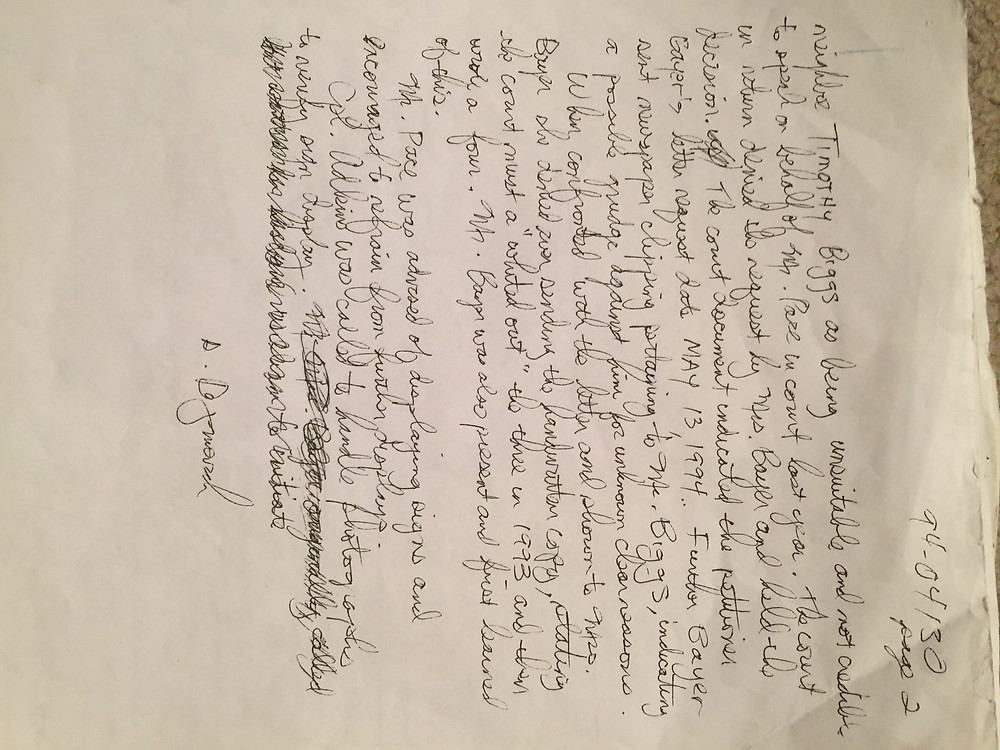 94-04130
page 2
neighbor TIMOTHY BIGGS as being unsuitable and not credible
to speak on behalf of Mr. Pace in court last year. The court
in return denied the request by Mrs. Bayer and held the
decision. The court document indicated the petitioner
Bayer's letter request date MAY 13 1994. Further Bayer
sent newspaper clipping pertaining to Mr. Biggs, indicating
a possible grudge against him for unknown clear reasons.
When confronted with the letter and shown to Mrs.
Bayer she denied ever sending the handwritten copy, stating
the court must a "whited out" the three in 1993 and then
wrote a four. Mr. Bayer was also present and first learned
of this.
Mr. Pace was advised of displaying signs and
encouraged to refrain from further display.
Cpl. Adkins was called to handle photographs
to verify own display.
D.